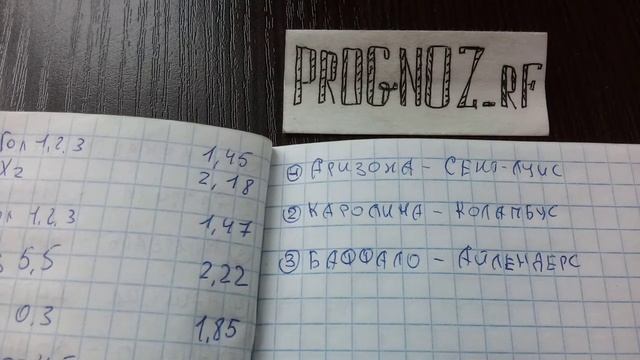 PROGNOZ-RF
гол 1,2,3 1,45
X2 2,18
1,2,3 1,47
5,5 2,22
0,3 1,85
1 АРИЗОНА - СЕНТ-ЛУИС
2 КАРОЛИНА - КОЛАМБУС
3 БАФФАЛО - АЙЛЕНДЕРС